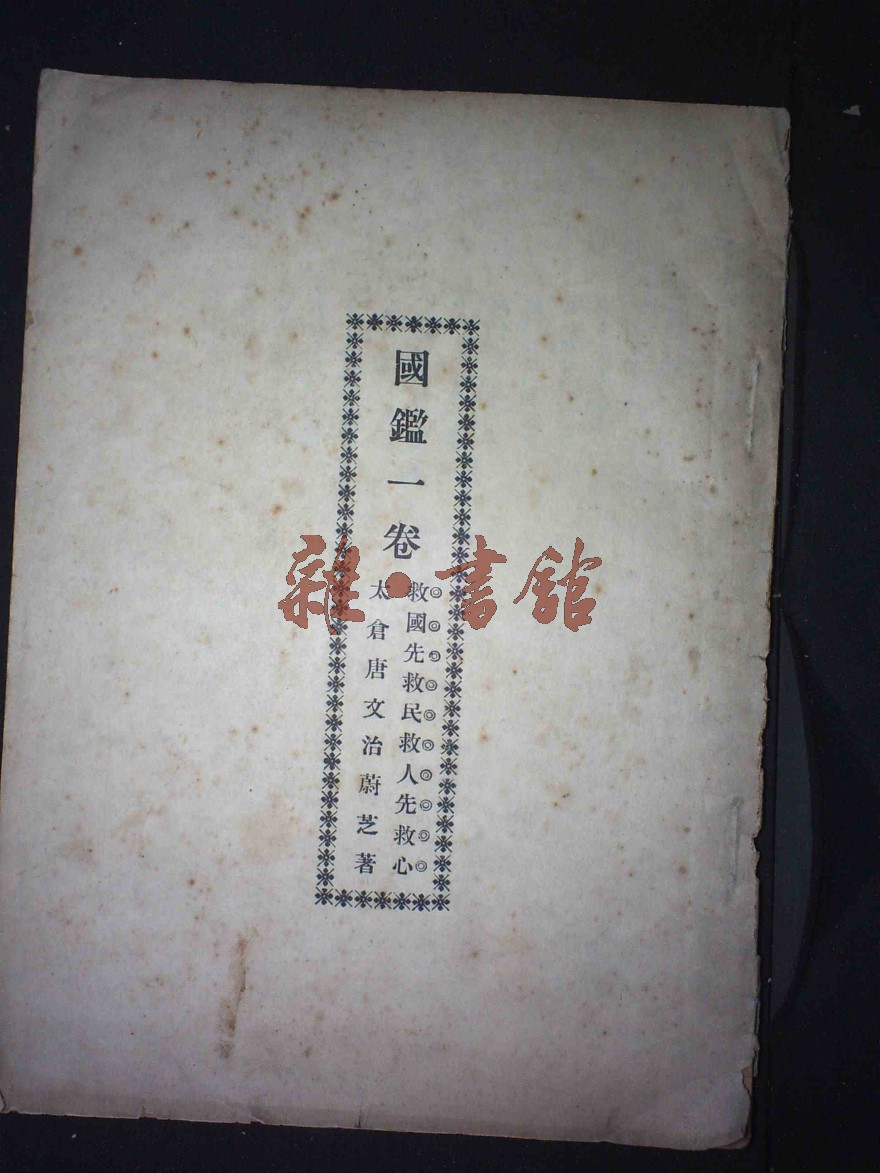 國鑑一卷
救國先救民救人先救心
太倉唐文治蔚芝著
雜·書館